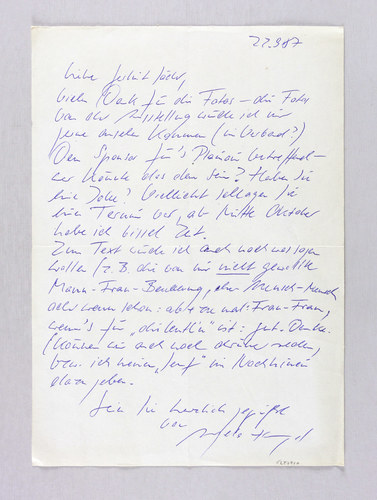 27.9.87
vielen Dank für die Fotos – die Fotos
von der Ausstellung würde ich mir
gerne ansehen kommen
Den Sponsor für's betreffend –
wer könnte das denn sein? Haben Sie
eine Idee? Vielleicht schlagen Sie
einen Termin vor, ab Mitte Oktober
habe ich bissel Zeit.
Zum Text würde ich auch noch was sagen
wollen (z.B. die von mir nicht gewollte
Mann-Frau-Benennung, Mensch-Mensch
oder wenn schon: Frau-Frau,
wenn's für ist: gut. Danke.
(Können wir auch noch drüber reden,
bzw. ich meinen „Senf" im Nachhinein
dazu geben.
Seien Sie herzlich gegrüßt
von